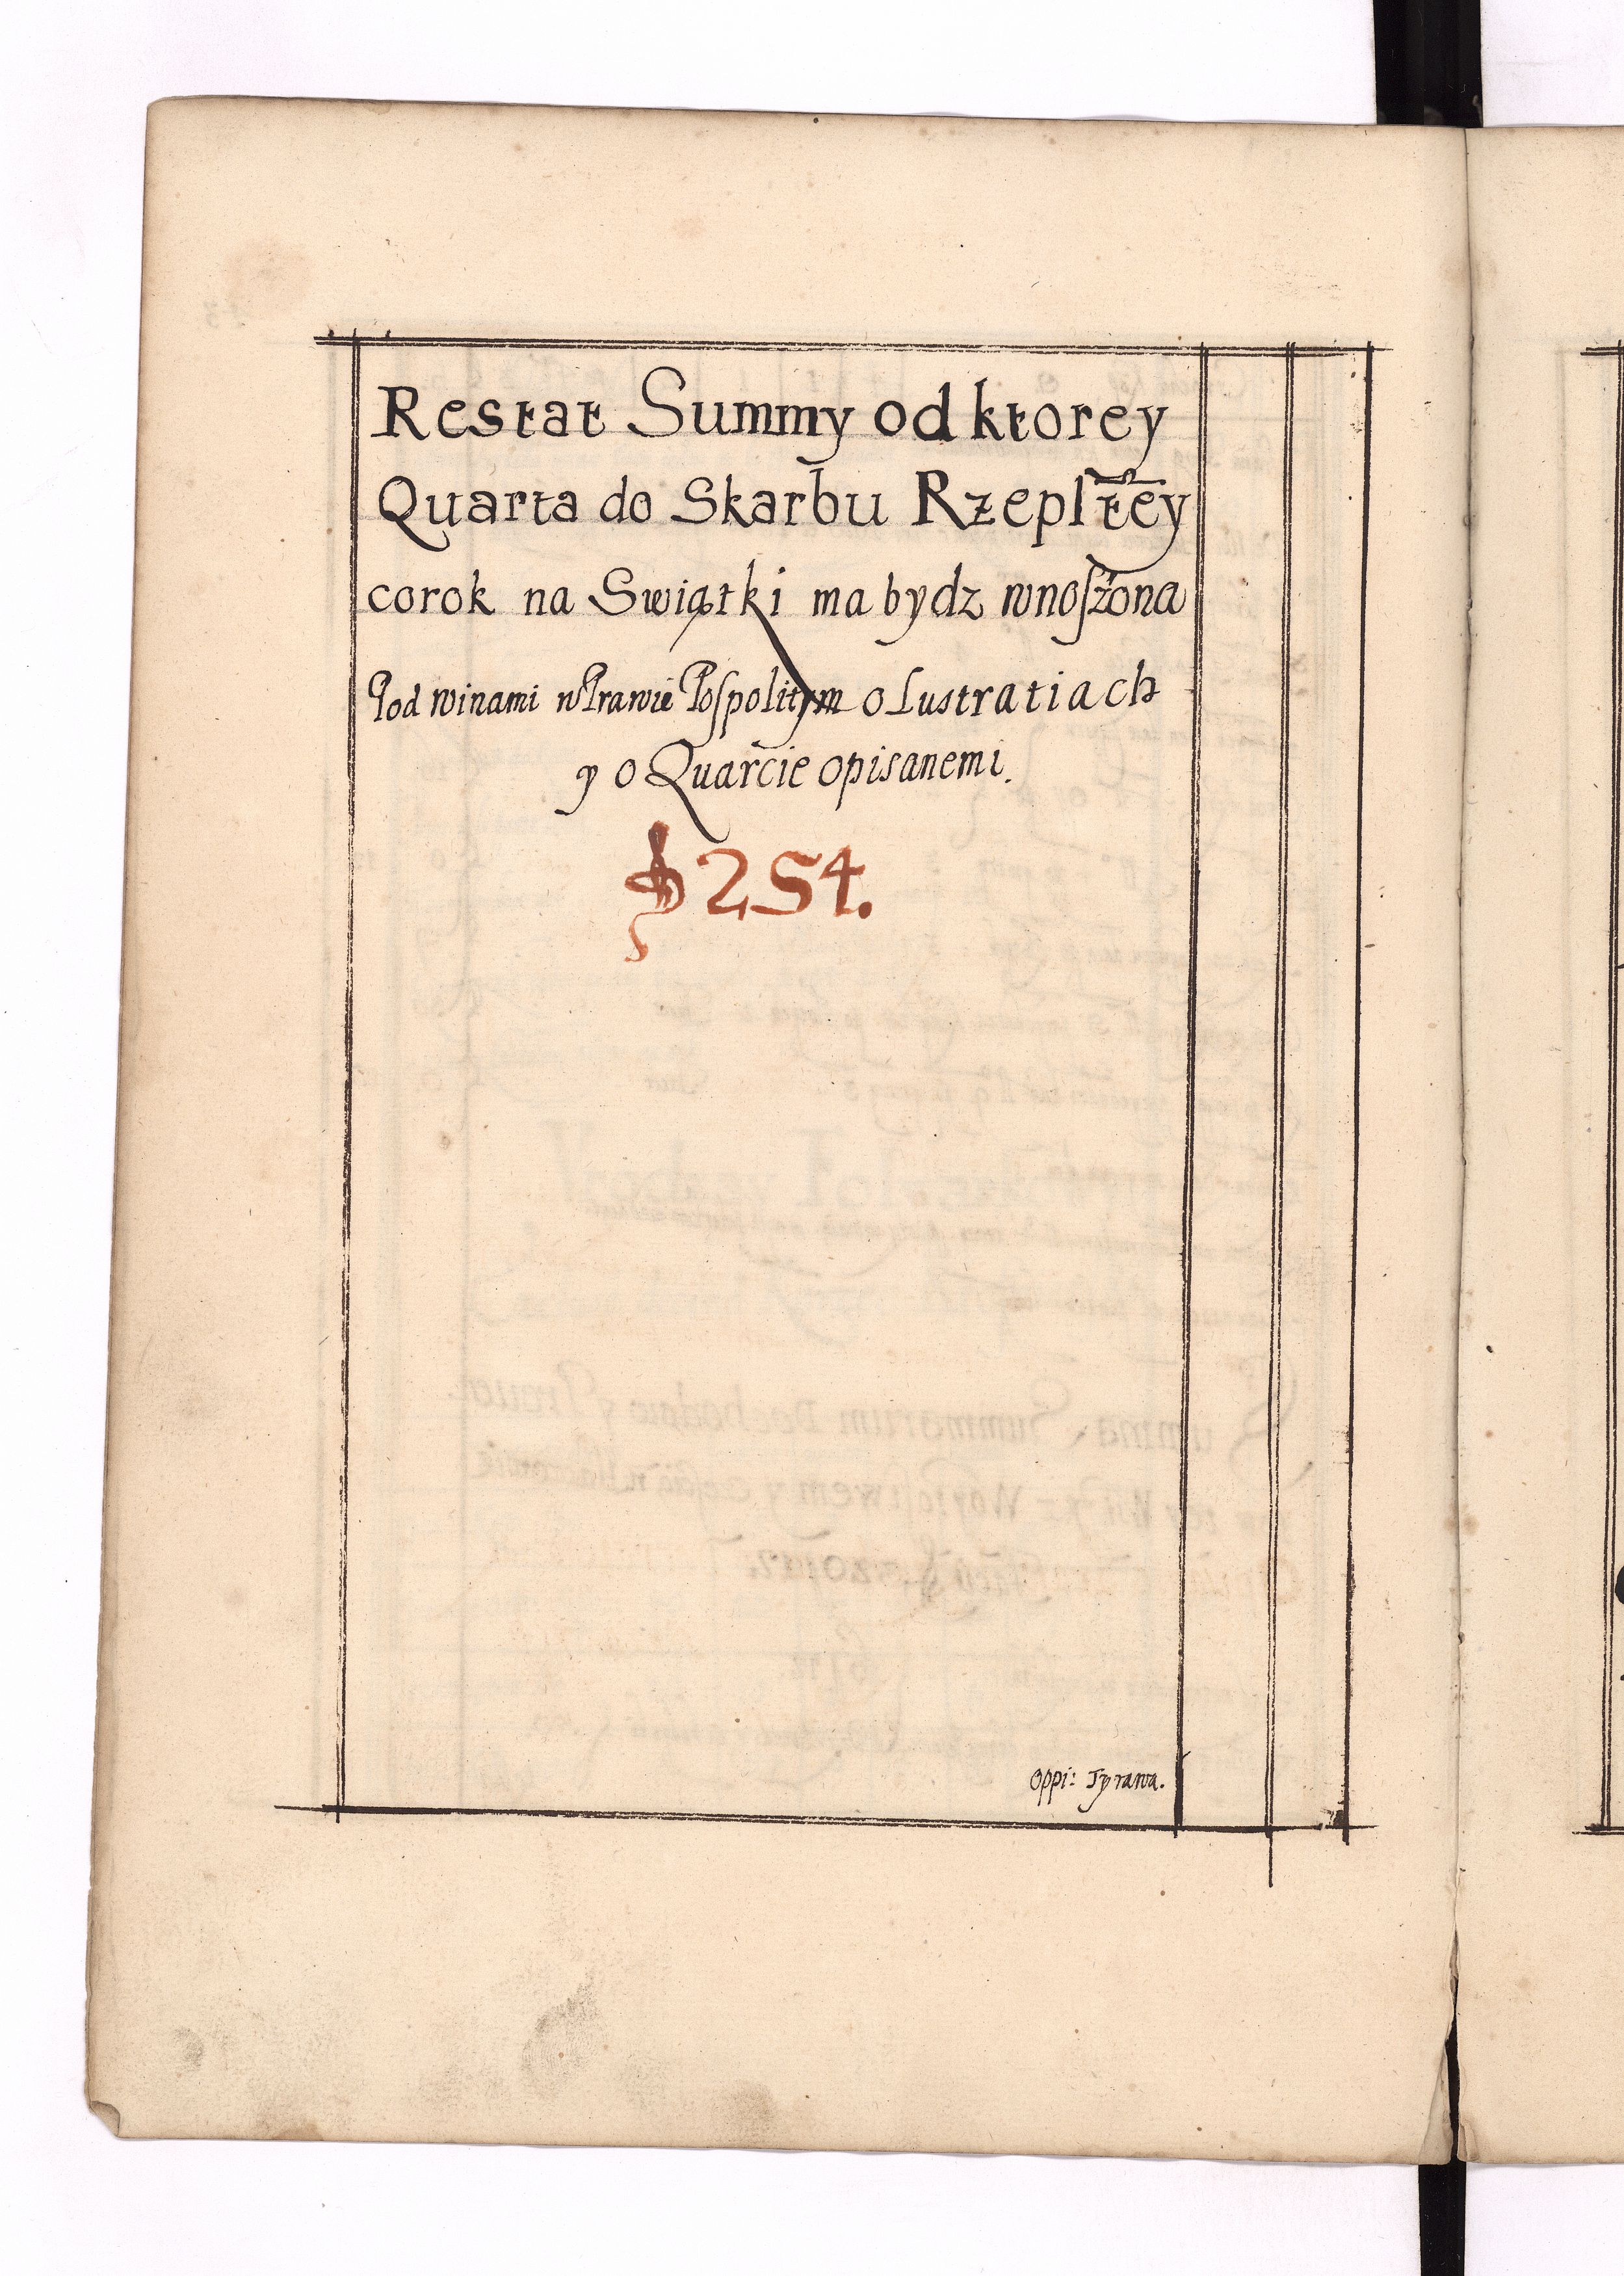 Restat Summy od ktorey
Quarta do Skarbu Rzeplt̃ey
corok na Swiątki ma bydz wnoſżona
Pod winami w Prawie Poſpolitym o Lustratiach
y o Quarcie opisanemi.
254.
Oppi: Tyrawa.